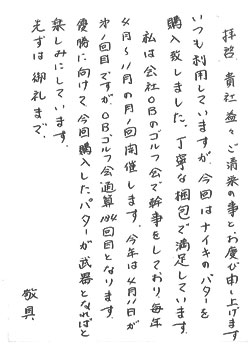 拝啓 貴社益々ご清栄の事とお慶び申し上げます
いつも利用していますが、今回はナイキのパターを
購入致しました。丁寧な梱包で満足しています。
私は会社OBのゴルフ会で幹事をしており、毎年
4月〜11月の月1回開催します。今年は4月11日が
第1回目ですが、OBゴルフ会通算184回目となります。
優勝に向けて今回購入したパターが武器となればと
楽しみにしています。
先ずは御礼まで。
敬具